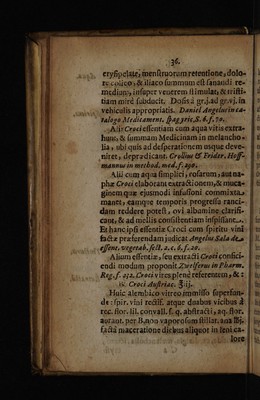 36.
erysipelate, menstruorum retentione, dolo-
re colico, & iliaco summum est sanandi re-
medium, insuper venerem stimulat, & tristi-
tiam mirè subducit. Dosis à gr. j. ad gr. vj. in
vehiculis appropriatis. Daniel Angelus in ca-
talogo Medicament. spagyric. S. 8. f. 70.
Alii Croci essentiam cum aqua vitis extra-
hunt, & summam Medicinam in melancho-
lia, ubi quis ad desperationem usque deve-
niret, deprædicant. Crollius & Frider. Hoff-
mannus in method. med. f. 290.
Alii cum aqua simplici, rosarum, aut na-
phæ Croci elaborant extractionem, & muca-
ginem quæ ejusmodi infusioni connixta
manet, eamque temporis progressa ranci-
dam reddere potest, ovi albumine clarifi-
cant, & ad mellis consistentiam inspissant.
Et hanc ipsi essentiæ Croci cum spiritu vini
factæ præferendam judicat Angelus Sala de
essent. vegetab. sect. 2. c. 6. f. 20.
Alium essentiæ, seu extracti Croci confici-
endi modum proponit Zwelferus in Pharm.
Reg. f. 412. Croci vitra plenè referentem, & :
℞. Croci Austriac. ℥ij.
Huic alembico vitreo immisso superfun-
de: spir. vini rectif. atque duobus vicibus à
rec. flor. lil. convall. s. q. abstracti, aq. flor.
auraut. per B. no vaporosum stillat. aua ℔j.
facta maceratione diebus aliquot in leni ca-
lore